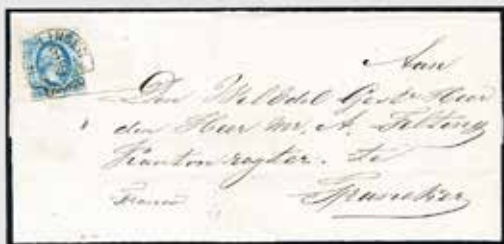 Aan
Den Weledel Gestr Heer
den Heer Mr. A. Telting
Kantonregter. te
Franeker
Franco